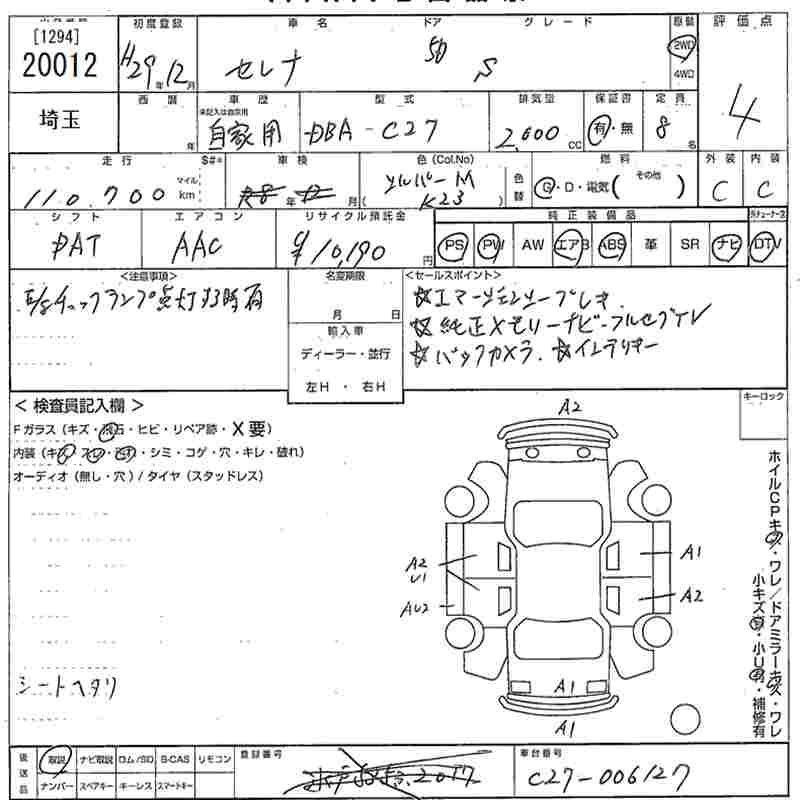 [1294]
20012
初度登録
H29年12月
車名
セレナ
ドア
5D
グレード
S
原動
2WD
4WD
評価点
4
埼玉
西暦
年
車歴
未記入は自家用
自家用
型式
DBA-C27
排気量
2,000 CC
保証書
有・無
定員
8名
走行
110,700
マイル
km
S#*
車検
R8年12月
色(Col.No)
シルバーM
( K23 )
色替
燃料
G・D・電気( その他 )
外装
C
内装
C
シフト
DAT
エアコン
AAC
リサイクル預託金
¥10,190円
純正装備品
PS PW AW エアB ABS 革 SR ナビ
DTV
<注意事項>
E/gチェックランプ点灯する時有
名変期限
月 日
輸入車
ディーラー・並行
左H・右H
<セールスポイント>
☆エマージェンシーブレーキ
☆純正メモリーナビ・フルセグTV
☆バックカメラ ☆インテリキー
<検査員記入欄>
Fガラス(キズ・飛石・ヒビ・リペア跡・X要)
内装(キズ・スレ・汚れ・シミ・コゲ・穴・キレ・破れ)
オーディオ(無し・穴)/タイヤ(スタッドレス)
シートヘタリ
キーロック
A2
A2
U1
AU2
A1
A2
A1
A1
ホイルCPキズ・ワレ/ドアミラーキズ・ワレ
小キズ有・小U有・補修有
後送品
取説 ナビ取説 ロム/SD B-CAS リモコン
ナンバー スペアキー キーレス スマートキー
登録番号
車台番号
C27-006127